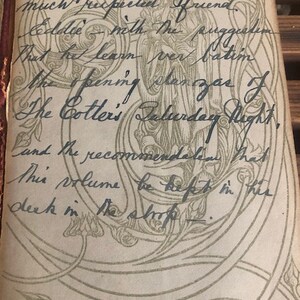 much respected friend
Eddie — with the suggestion
that he learn verbatim
the opening stanzas of
The Cotters Saturday Night,
and the recommendation that
this volume be kept in his
desk in the shop —.